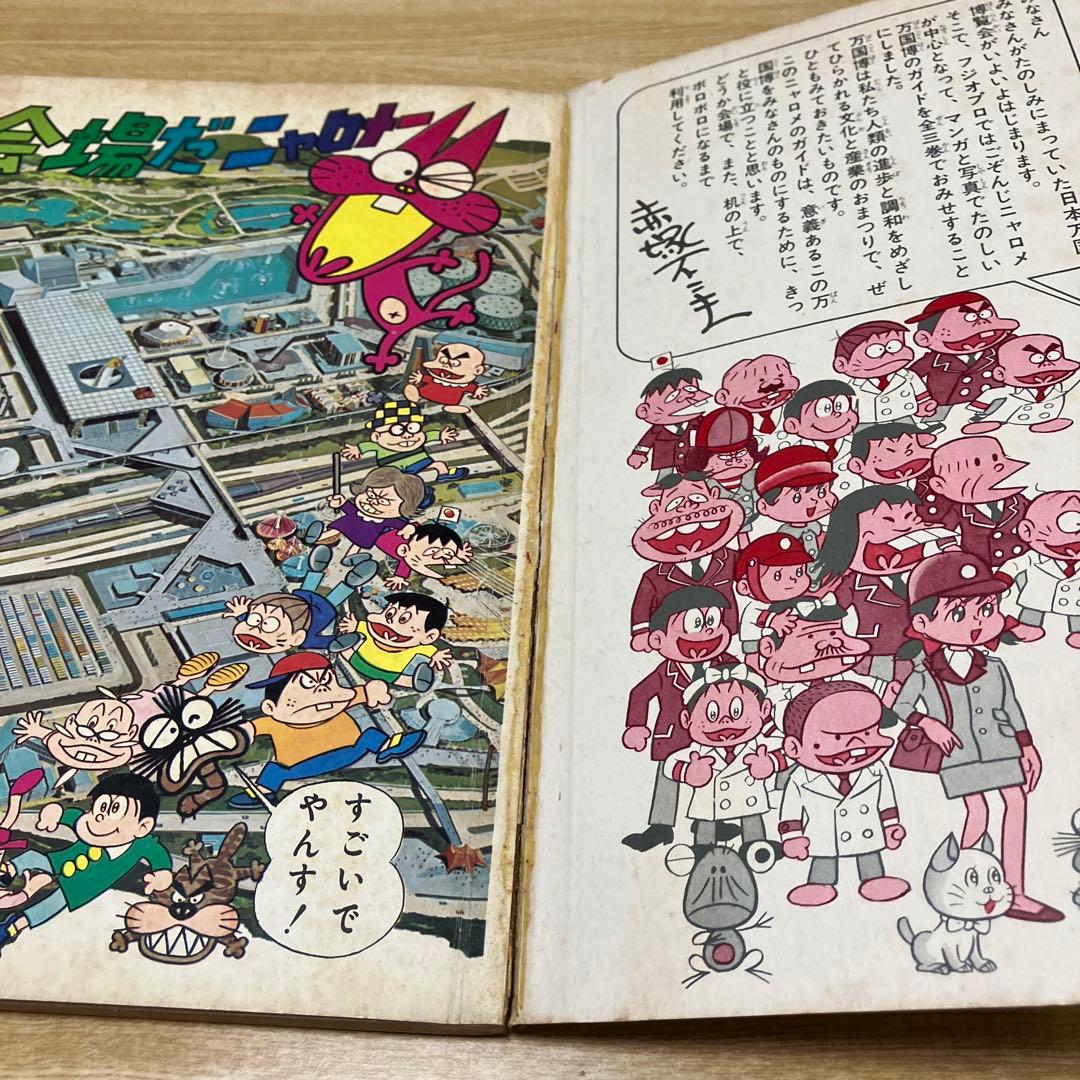 会場だニャロメー
すごいで
やんす！
みなさん
みなさんがたのしみにまっていた日本万国
博覧会がいよいよはじまります。
そこで、フジオプロではごぞんじニャロメ
が中心となって、マンガと写真でたのしい
万国博のガイドを全三巻でおみせすること
にしました。
万国博は私たち人類の進歩と調和をめざし
てひらかれる文化と産業のおまつりで、ぜ
ひともみておきたいものです。
このニャロメのガイドは、意義あるこの万
国博をみなさんのものにするために、きっ
と役に立つことと思います。
どうか会場で、また、机の上で、
ボロボロになるまで
利用してください。
赤塚不二夫